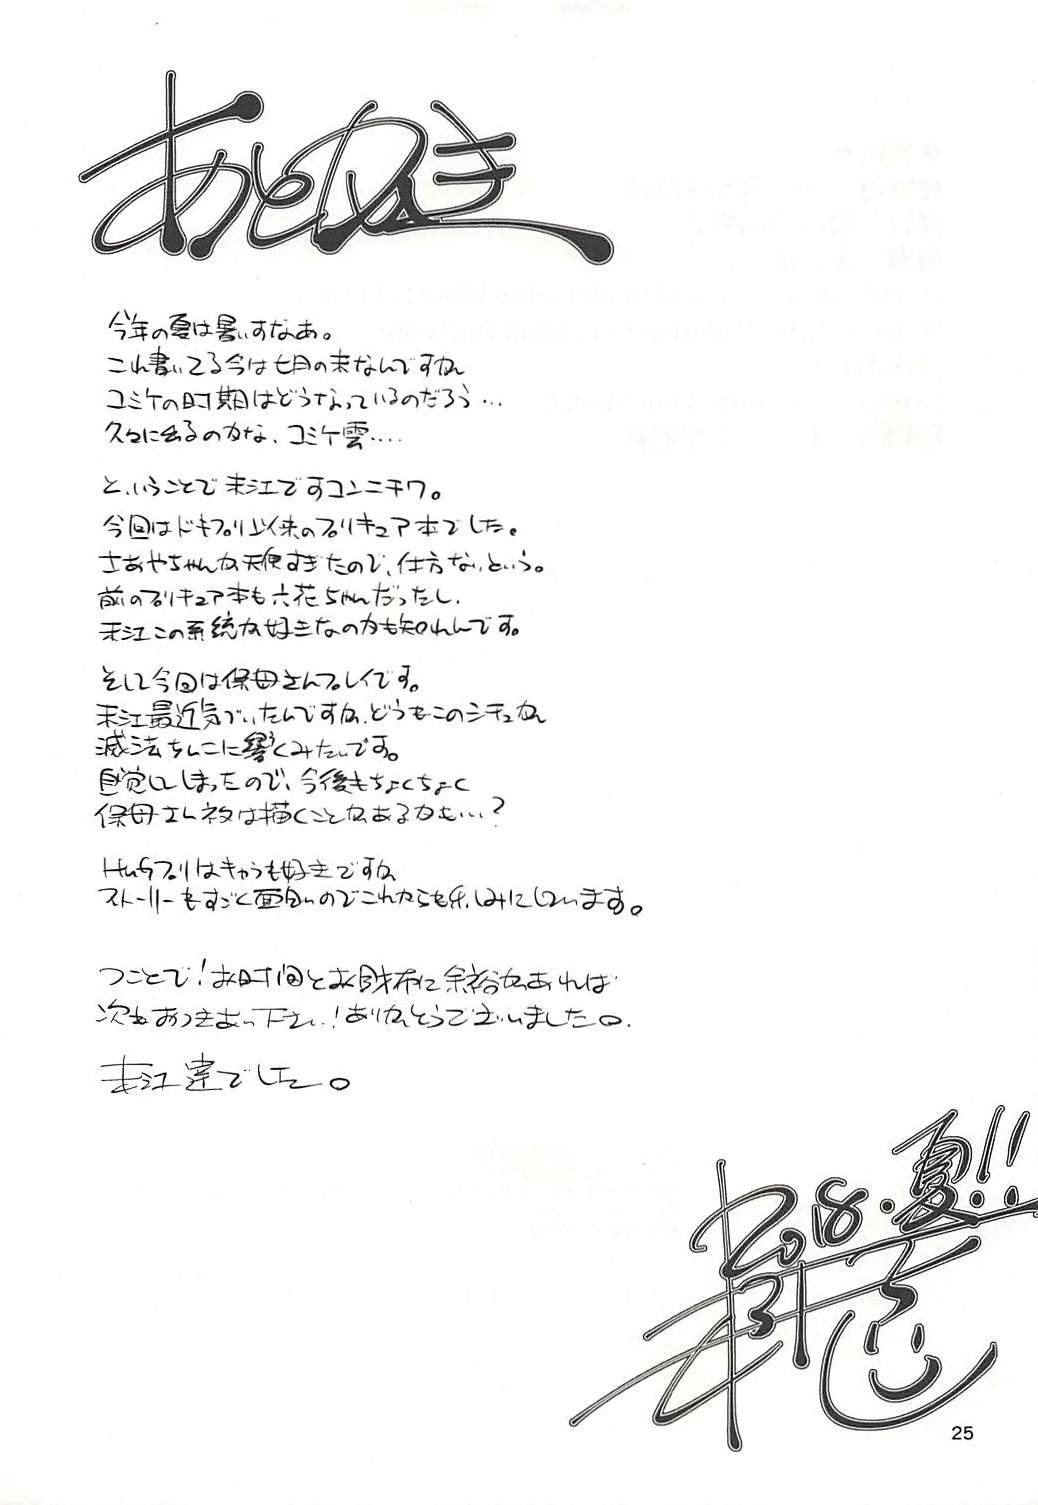 あとがき
今年の夏は暑いすなあ。
これ書いてる今は七月の末なんですが
コミケの時期はどうなっているのだろう…
久々に出るのかな、コミケ雲‥‥
と、いうことで末江ですコンニチワ。
今回はドキプリ以来のプリキュア本でした。
さあやちゃんが天使すぎたので、仕方ないという。
前のプリキュア本も六花ちゃんだったし、
末江この系統が好きなのかも知れんです。
そして今回は保母さんプレイです。
末江最近気づいたんですが、どうもこのシチュが
滅法ちんこに響くみたいです。
自覚してしまったので、今後もちょくちょく
保母さんネタは描くことがあるかも…?
Hugプリはキャラも好きですが
ストーリーもすごく面白いのでこれからも楽しみにしています。
つことで!お時間とお財布に余裕があれば
次もおつきあい下さい!ありがとうございました。
末江達でした。
2018.夏!!
25